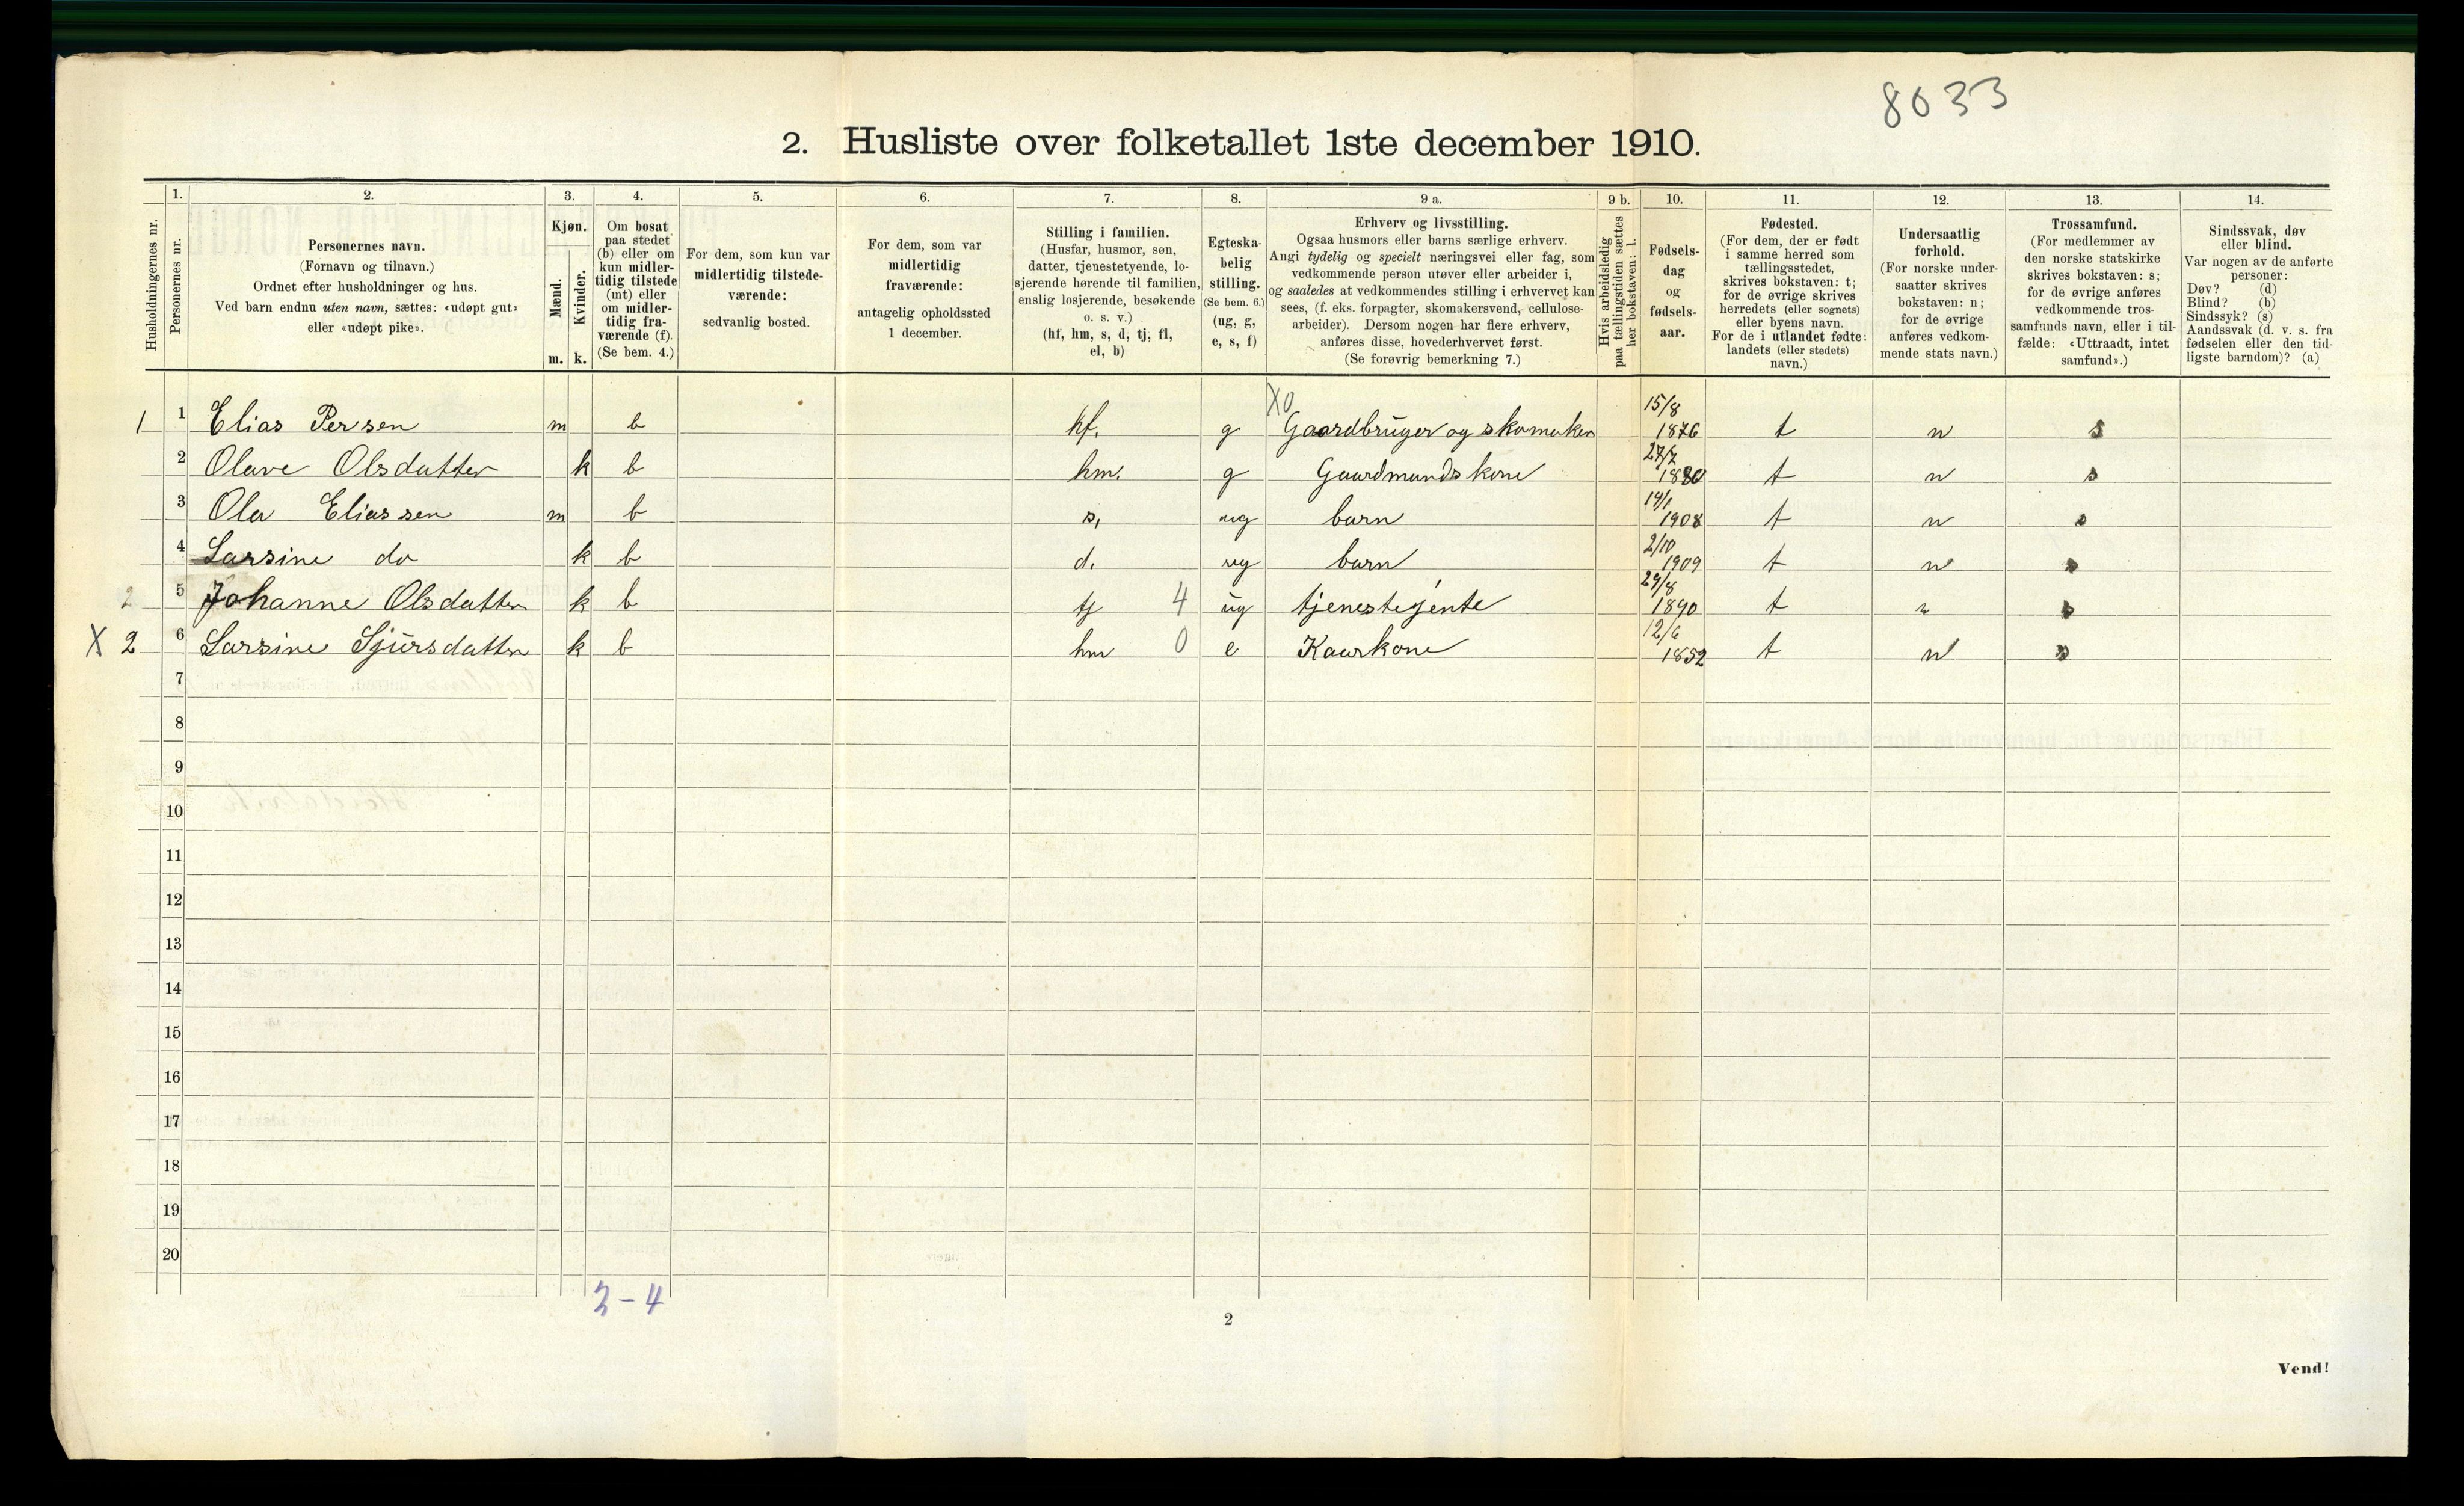 8033
2. Husliste over folketallet 1ste december 1910.
Husholdningernes nr.
1. Personernes nr.
2. Personernes navn. (Fornavn og tilnavn.) Ordnet efter husholdninger og hus. Ved barn endnu uten navn, sættes: «udøpt gut» eller «udøpt pike».
3. Kjøn. Mænd. m. Kvinder. k.
4. Om bosat paa stedet (b) eller om kun midlertidig tilstede (mt) eller om midlertidig fraværende (f). (Se bem. 4.)
5. For dem, som kun var midlertidig tilstedeværende: sedvanlig bosted.
6. For dem, som var midlertidig fraværende: antagelig opholdssted 1 december.
7. Stilling i familien. (Husfar, husmor, søn, datter, tjenestetyende, losjerende hørende til familien, enslig losjerende, besøkende o. s. v.) (hf, hm, s, d, tj, fl, el, b)
8. Egteskabelig stilling. (Se bem. 6.) (ug, g, e, s, f)
9 a. Erhverv og livsstilling. Ogsaa husmors eller barns særlige erhverv. Angi tydelig og specielt næringsvei eller fag, som vedkommende person utøver eller arbeider i, og saaledes at vedkommendes stilling i erhvervet kan sees, (f. eks. forpagter, skomakersvend, cellulosearbeider). Dersom nogen har flere erhverv, anføres disse, hovederhvervet først. (Se forøvrig bemerkning 7.)
9 b. Hvis arbeidsledig paa tællingstiden sættes her bokstaven: l.
10. Fødselsdag og fødselsaar.
11. Fødested. (For dem, der er født i samme herred som tællingsstedet, skrives bokstaven: t; for de øvrige skrives herredets (eller sognets) eller byens navn. For de i utlandet fødte: landets (eller stedets) navn.)
12. Undersaatlig forhold. (For norske undersaatter skrives bokstaven: n; for de øvrige anføres vedkommende stats navn.)
13. Trossamfund. (For medlemmer av den norske statskirke skrives bokstaven: s; for de øvrige anføres vedkommende trossamfunds navn, eller i tilfælde: «Uttraadt, intet samfund».)
14. Sindssvak, døv eller blind. Var nogen av de anførte personer: Døv? (d) Blind? (b) Sindssyk? (s) Aandssvak (d. v. s. fra fødselen eller den tidligste barndom)? (a)
1 1 Elias Persen m b hf. g X0 Gaardbruger og skomaker 15/8 1876 t n s
2 Olave Olsdatter k b hm. g Gaardmandskone 27/7 1880 t n s
3 Ola Eliassen m b s, ug barn 14/1 1908 t n s
4 Larsine do k b d. ug barn 2/10 1909 t n s
2 5 Johanne Olsdatter k b tj 4 ug tjenestejente 29/8 1890 t n s
X 2 6 Larsine Sjursdatter k b hm 0 e Kaarkone 12/6 1852 t n s
7
8
9
10
11
12
13
14
15
16
17
18
19
20
2-4
2
Vend!